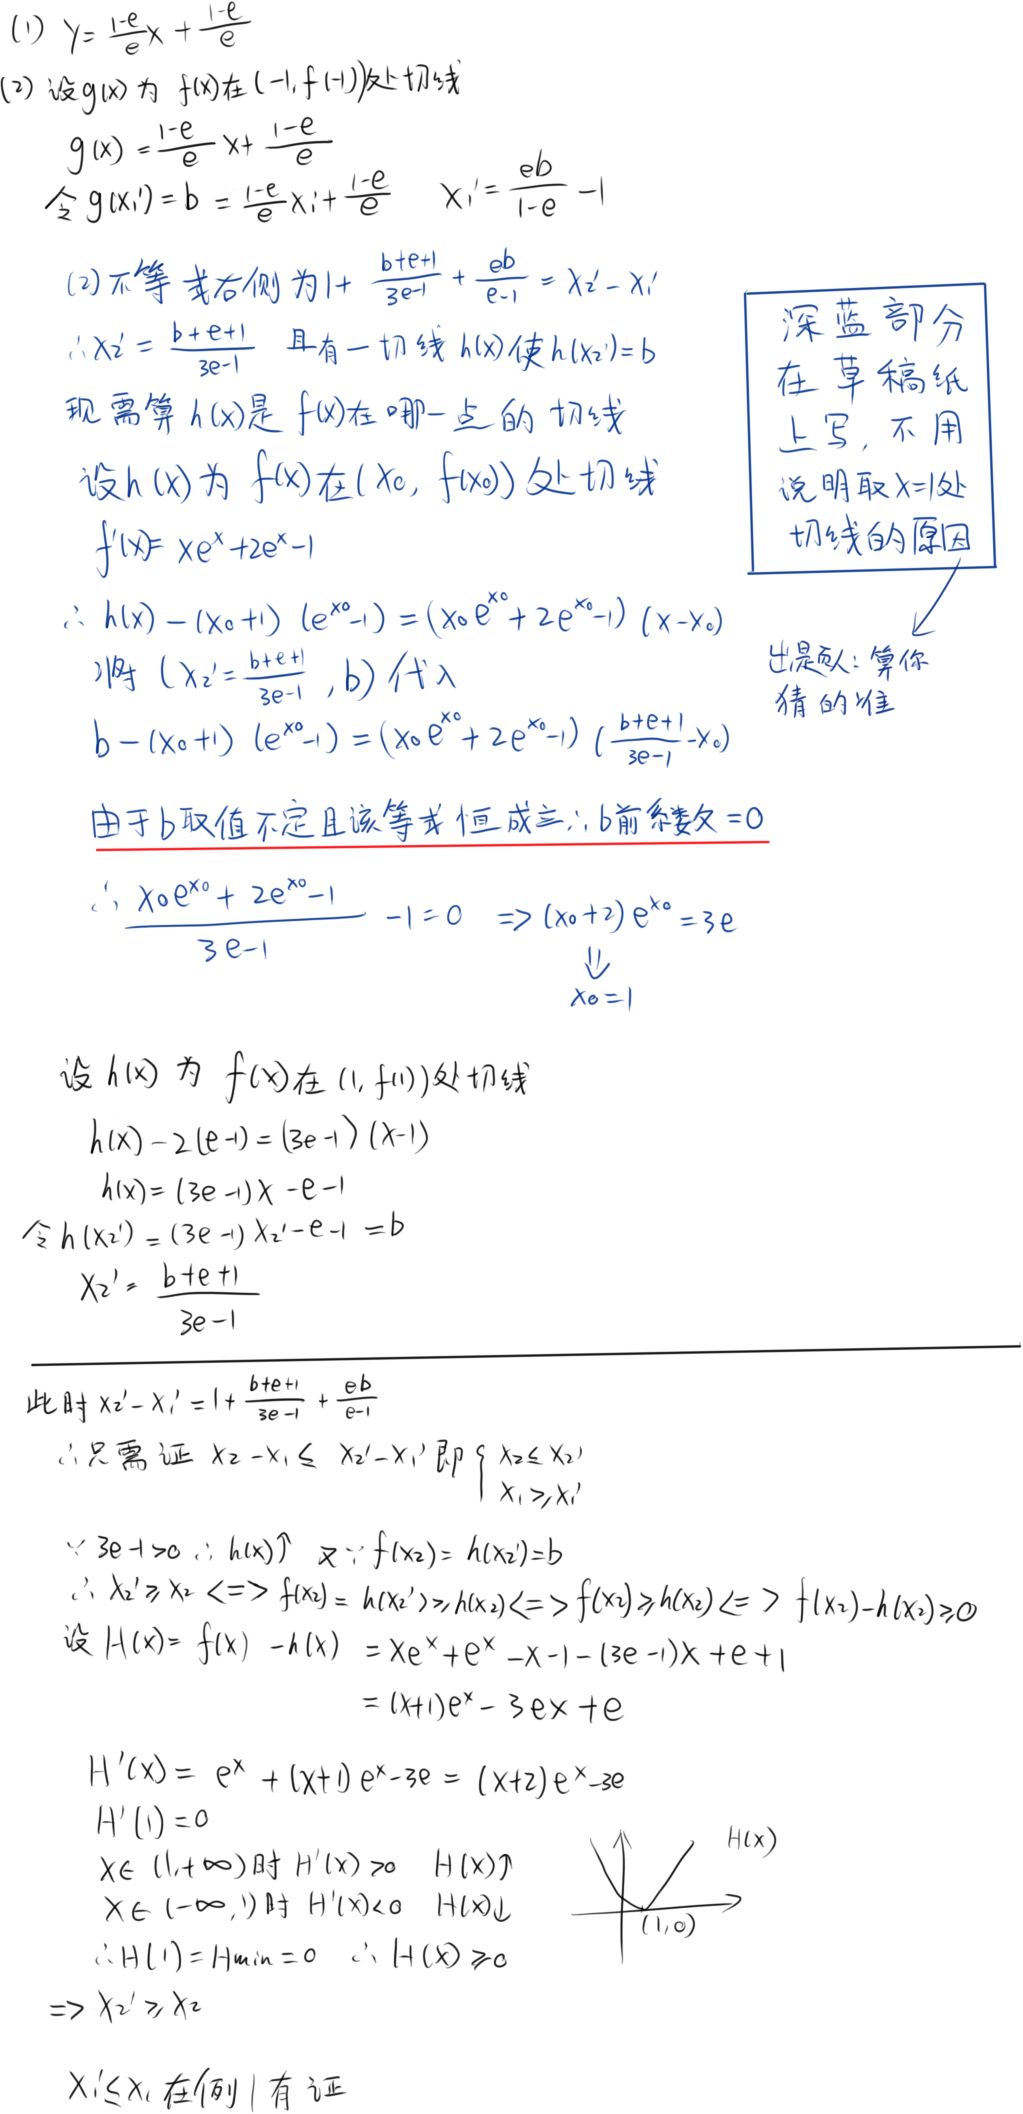 (1) y=\frac{1-e}{e}x+\frac{1-e}{e}
(2) 设g(x)为 f(x)在(-1,f(-1))处切线
g(x)=\frac{1-e}{e}x+\frac{1-e}{e}
令g(x₁')=b=\frac{1-e}{e}x₁'+\frac{1-e}{e}  x₁'=\frac{eb}{1-e}-1
(2)不等式右侧为1+\frac{b+e+1}{3e-1}+\frac{eb}{e-1}=x₂'-x₁'
∴x₂'=\frac{b+e+1}{3e-1} 且有一切线h(x)使h(x₂')=b
现需算h(x)是f(x)在哪一点的切线
设h(x)为f(x)在(x₀, f(x₀))处切线
f'(x)=xeˣ+2eˣ-1
∴h(x)-(x₀+1)(e^{x₀}-1)=(x₀e^{x₀}+2e^{x₀}-1)(x-x₀)
将(x₂'=\frac{b+e+1}{3e-1},b)代入
b-(x₀+1)(e^{x₀}-1)=(x₀e^{x₀}+2e^{x₀}-1)(\frac{b+e+1}{3e-1}-x₀)
由于b取值不定且该等式恒成立∴b前系数=0
∴\frac{x₀e^{x₀}+2e^{x₀}-1}{3e-1}-1=0 => (x₀+2)e^{x₀}=3e
⇓
x₀=1
深蓝部分
在草稿纸
上写,不用
说明取x=1处
切线的原因
出题人:算你
猜的准
设h(x)为f(x)在(1,f(1))处切线
h(x)-2(e-1)=(3e-1)(x-1)
h(x)=(3e-1)x-e-1
令h(x₂')=(3e-1)x₂'-e-1=b
x₂'=\frac{b+e+1}{3e-1}
此时x₂'-x₁'=1+\frac{b+e+1}{3e-1}+\frac{eb}{e-1}
∴只需证 x₂-x₁≤x₂'-x₁'即{x₂≤x₂'
x₁≥x₁'
∵3e-1>0∴h(x)↑ 又∵f(x₂)=h(x₂')=b
∴x₂'≥x₂<=>f(x₂)=h(x₂')≥h(x₂)<=>f(x₂)≥h(x₂)<=>f(x₂)-h(x₂)≥0
设H(x)=f(x)-h(x)=xeˣ+eˣ-x-1-(3e-1)x+e+1
=(x+1)eˣ-3ex+e
H'(x)=eˣ+(x+1)eˣ-3e=(x+2)eˣ-3e
H'(1)=0
x∈(1,+∞)时H'(x)>0 H(x)↑
x∈(-∞,1)时H'(x)<0 H(x)↓
∴H(1)=Hmin=0 ∴H(x)≥0
=>x₂'≥x₂
H(x)
(1,0)
x₁'≤x₁在例1有证